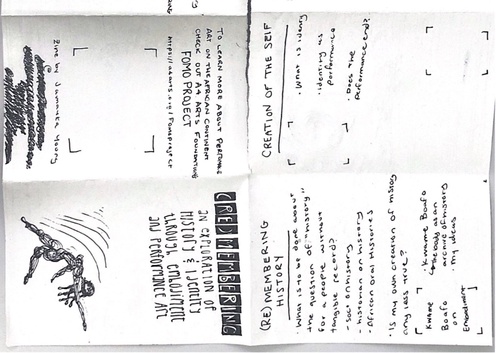 (RE)MEMBERING
AN EXPLORATION OF
HISTORY & IDENTITY
THROUGH EMBODIMENT
AND PERFORMANCE ART
TO LEARN MORE ABOUT PERFORMANCE
ART ON THE AFRICAN CONTINENT
CHECK OUT A4 ARTS FOUNDATION'S
FOMO PROJECT
Zine by
(RE)MEMBERING
HISTORY
• What is to be done about
the question of history"
for a people without
tangible record?
- historian on history
- African Oral Histories
• Is my own creation of history
any less true?
Kwame
Boafo
on
Embodiment
• Kwame Boafo
the body as an
archive of history
• My ideas
CREATION OF THE SELF
• What is identity
• identity as
performance
• Does the
performance end?